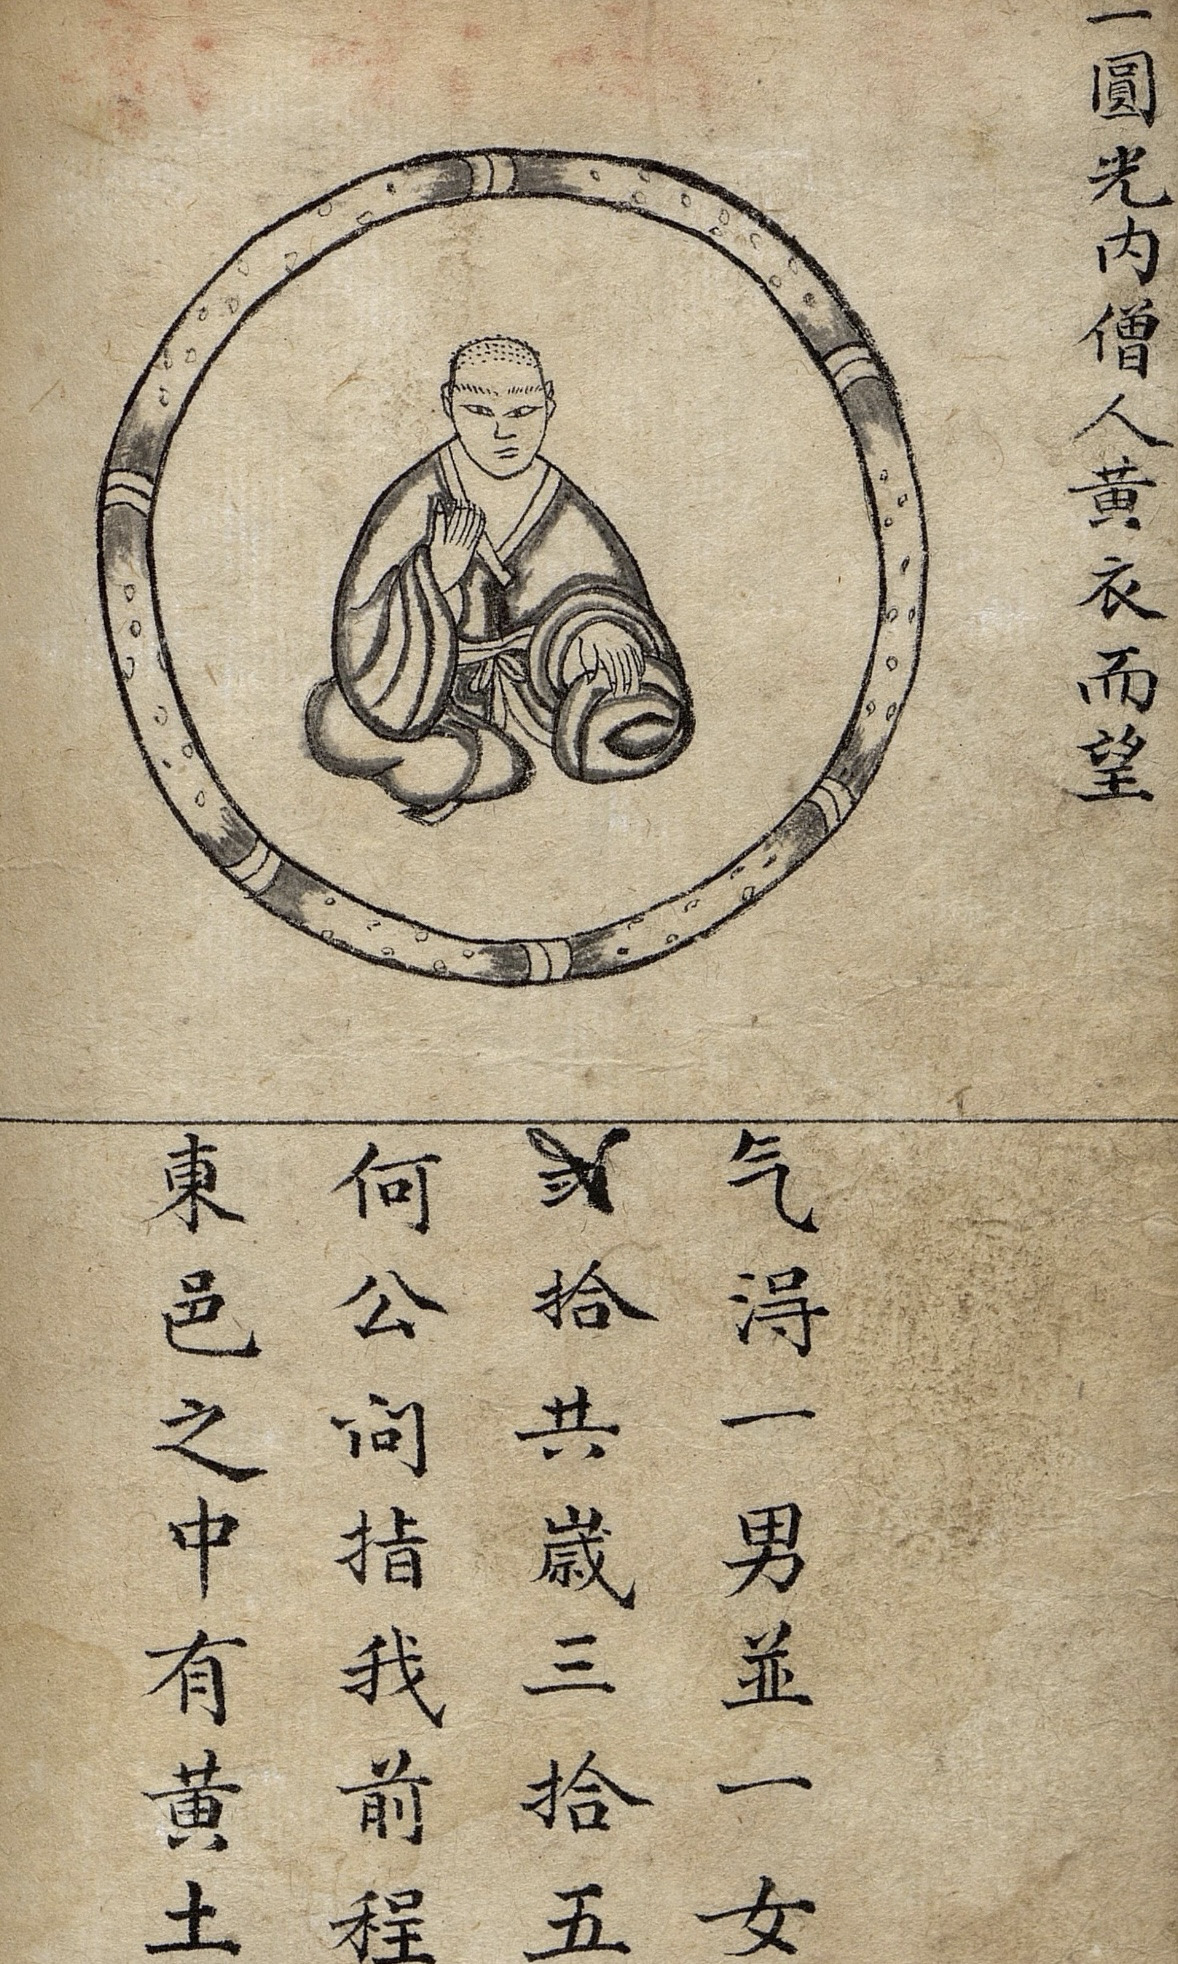 一圓光内僧人黃衣而望
气淂一男並一女
拾共歲三拾五
何公向指我前程
東邑之中有黃土